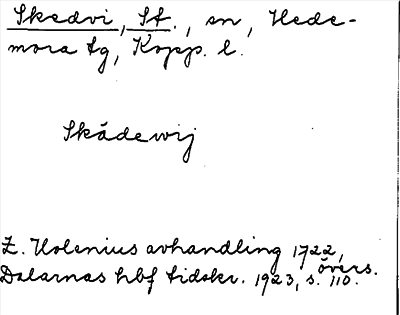 Skedvi, St., sn, Hede-
mora tg, Kopp. l.
Skådewij
Z. Holenius avhandling 1722,
övers.
Dalarnas hbf tidskr. 1923, s. 110.